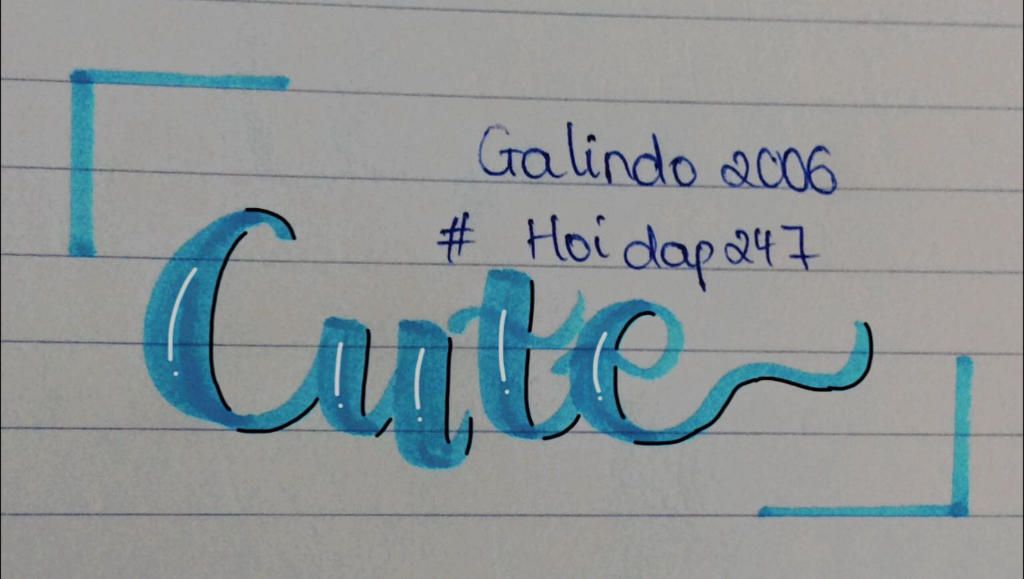 Galindo 2006
# Hoidap247
Cute